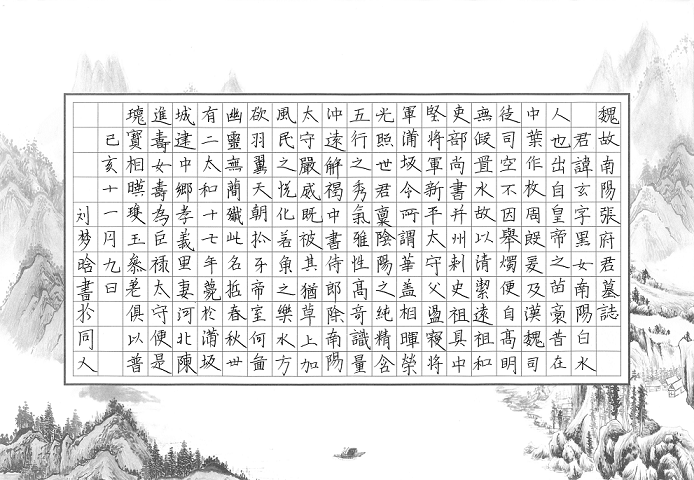 魏故南陽張府君墓誌
君諱玄字黑女南陽白水
人也出自皇帝之苗裔昔在
中葉作牧周殷爰及漢魏司
徒司空不因舉燭便自高明
無假置水故以清潔遠祖和
吏部尚書并州刺史祖具中
堅將軍新平太守父盪寇將
軍蒲坂令所謂華蓋相暉榮
光照世君稟陰陽之純精含
五行之秀氣雅性高奇識量
沖遠解褐中書侍郎除南陽
太守嚴威既被其猶草上加
風民之悅化若魚之樂水方
欲羽翼天朝抓牙帝室何啚
幽靈無簡殲此名哲春秋世
有二太和十七年薨於蒲坂
城建中鄉孝義里妻河北陳
進壽女壽為巨祿太守便是
瑰寶相暎瓊玉參差俱以普
己亥十一月九日
刘梦晗書於同人